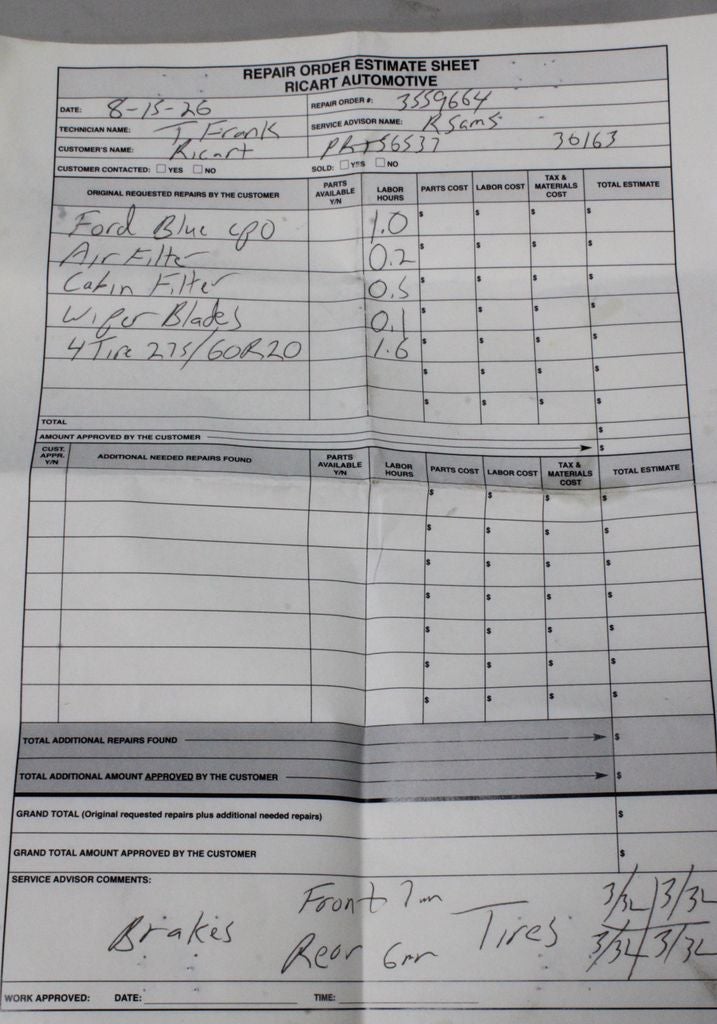 REPAIR ORDER ESTIMATE SHEET
RICART AUTOMOTIVE
DATE: 8-15-26 REPAIR ORDER #: 3559664
TECHNICIAN NAME: T Frank SERVICE ADVISOR NAME: R Sams
CUSTOMER'S NAME: Ricart 56537 30163
CUSTOMER CONTACTED: YES NO SOLD: YES NO
ORIGINAL REQUESTED REPAIRS BY THE CUSTOMER PARTS AVAILABLE Y/N LABOR HOURS PARTS COST LABOR COST TAX & MATERIALS COST TOTAL ESTIMATE
Ford Blue CPO 1.0 $ $ $ $
Air Filter 0.2 $ $ $ $
Cabin Filter 0.5 $ $ $ $
Wiper Blades 0.1 $ $ $ $
4 Tire 275/60R20 1.6 $ $ $ $
$ $ $ $
$ $ $ $
TOTAL $
AMOUNT APPROVED BY THE CUSTOMER $
CUST. APPR. Y/N ADDITIONAL NEEDED REPAIRS FOUND PARTS AVAILABLE Y/N LABOR HOURS PARTS COST LABOR COST TAX & MATERIALS COST TOTAL ESTIMATE
$ $ $ $
$ $ $ $
$ $ $ $
$ $ $ $
$ $ $ $
$ $ $ $
$ $ $ $
TOTAL ADDITIONAL REPAIRS FOUND $
TOTAL ADDITIONAL AMOUNT APPROVED BY THE CUSTOMER $
GRAND TOTAL (Original requested repairs plus additional needed repairs) $
GRAND TOTAL AMOUNT APPROVED BY THE CUSTOMER $
SERVICE ADVISOR COMMENTS:
Front 7mm 3/32 3/32
Brakes Tires
Rear 6mm 3/32 3/32
WORK APPROVED: DATE: TIME: